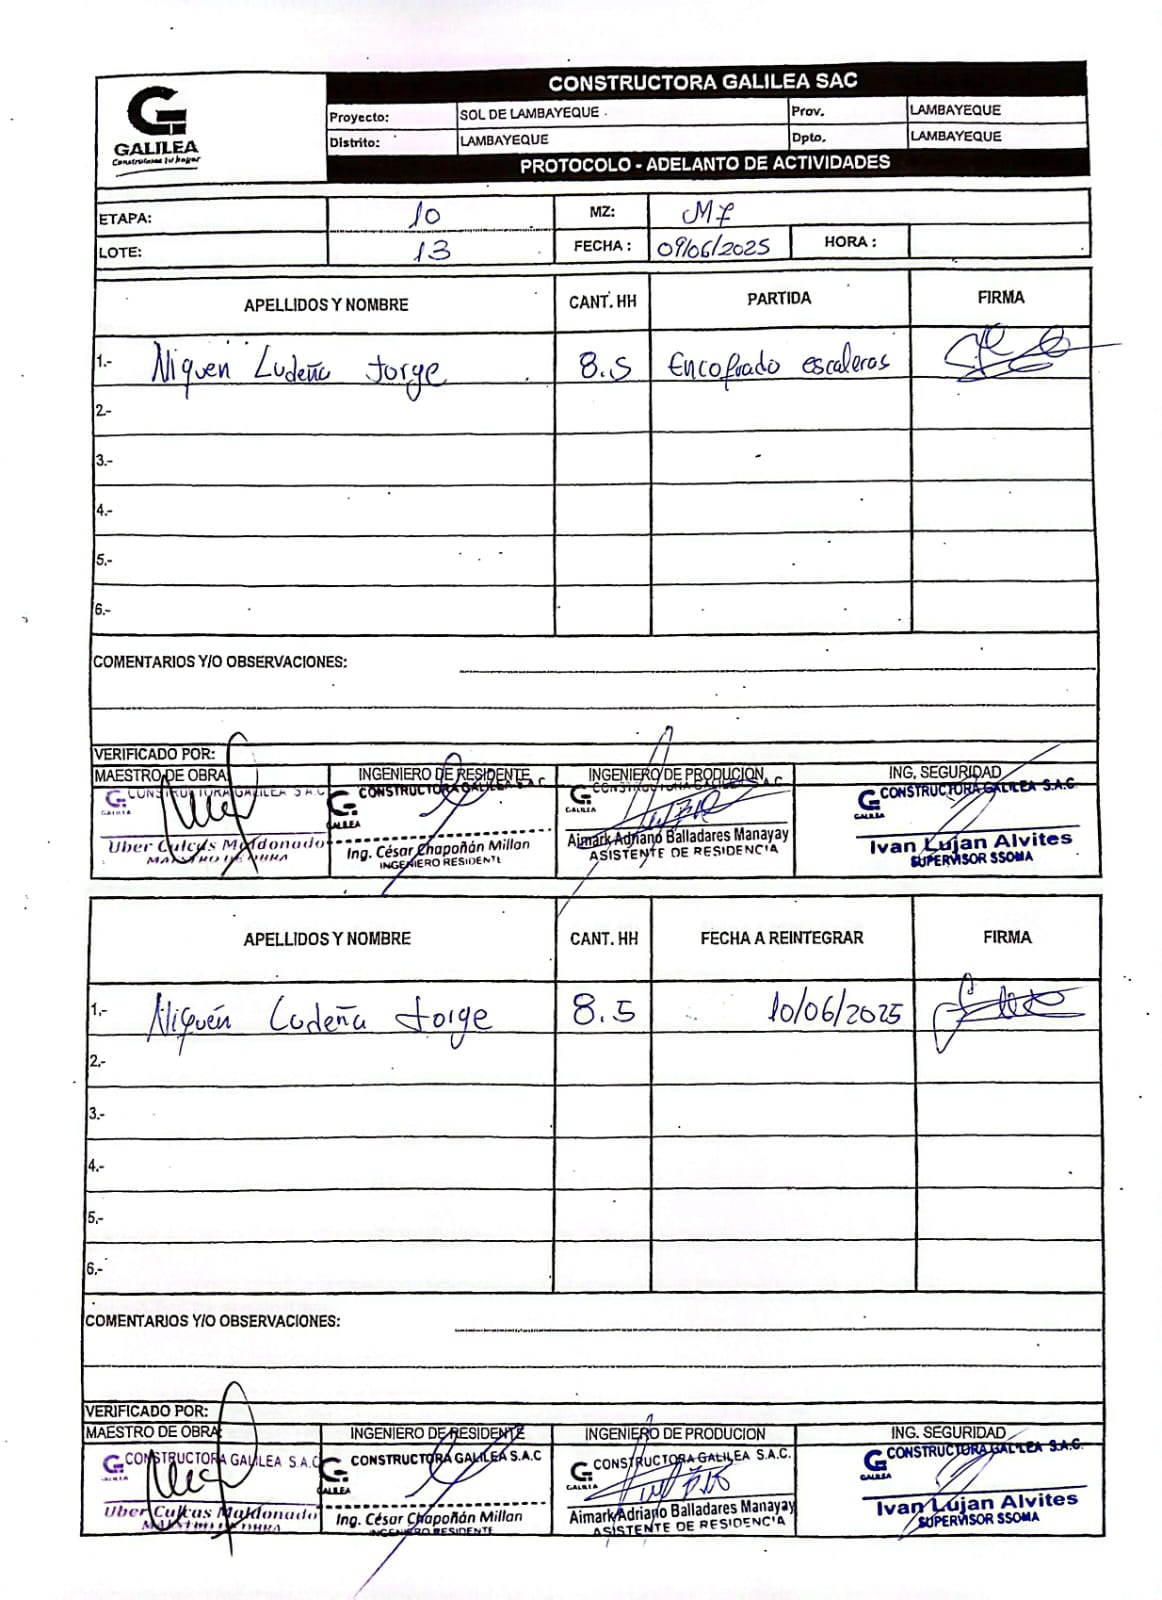 CONSTRUCTORA GALILEA SAC
GALILEA
Construimos tu hogar
Proyecto: SOL DE LAMBAYEQUE Prov. LAMBAYEQUE
Distrito: LAMBAYEQUE Dpto. LAMBAYEQUE
PROTOCOLO - ADELANTO DE ACTIVIDADES
ETAPA: 10 MZ: M7
LOTE: 13 FECHA: 09/06/2025 HORA:
APELLIDOS Y NOMBRE CANT. HH PARTIDA FIRMA
1.- Niquen Ludeña Jorge 8.5 Encofrado escaleras
2.-
3.-
4.-
5.-
6.-
COMENTARIOS Y/O OBSERVACIONES:
VERIFICADO POR:
MAESTRO DE OBRA INGENIERO DE RESIDENTE INGENIERO DE PRODUCION ING. SEGURIDAD
CONSTRUCTORA GALILEA S.A.C CONSTRUCTORA GALILEA S.A.C CONSTRUCTORA GALILEA S.A.C CONSTRUCTORA GALILEA S.A.C.
GALILEA GALILEA GALILEA GALILEA
Uber Culcas Maldonado Ing. César Chapoñán Millan Aimark Adriano Balladares Manayay Ivan Lujan Alvites
MAESTRO DE OBRA INGENIERO RESIDENTE ASISTENTE DE RESIDENCIA SUPERVISOR SSOMA
APELLIDOS Y NOMBRE CANT. HH FECHA A REINTEGRAR FIRMA
1.- Niquén Ludeña Jorge 8.5 10/06/2025
2.-
3.-
4.-
5.-
6.-
COMENTARIOS Y/O OBSERVACIONES:
VERIFICADO POR:
MAESTRO DE OBRA INGENIERO DE RESIDENTE INGENIERO DE PRODUCION ING. SEGURIDAD
CONSTRUCTORA GALILEA S.A.C CONSTRUCTORA GALILEA S.A.C CONSTRUCTORA GALILEA S.A.C. CONSTRUCTORA GALILEA S.A.C.
GALILEA GALILEA GALILEA GALILEA
Uber Culcas Maldonado Ing. César Chapoñán Millan Aimark Adriano Balladares Manayay Ivan Lujan Alvites
MAESTRO DE OBRA INGENIERO RESIDENTE ASISTENTE DE RESIDENCIA SUPERVISOR SSOMA